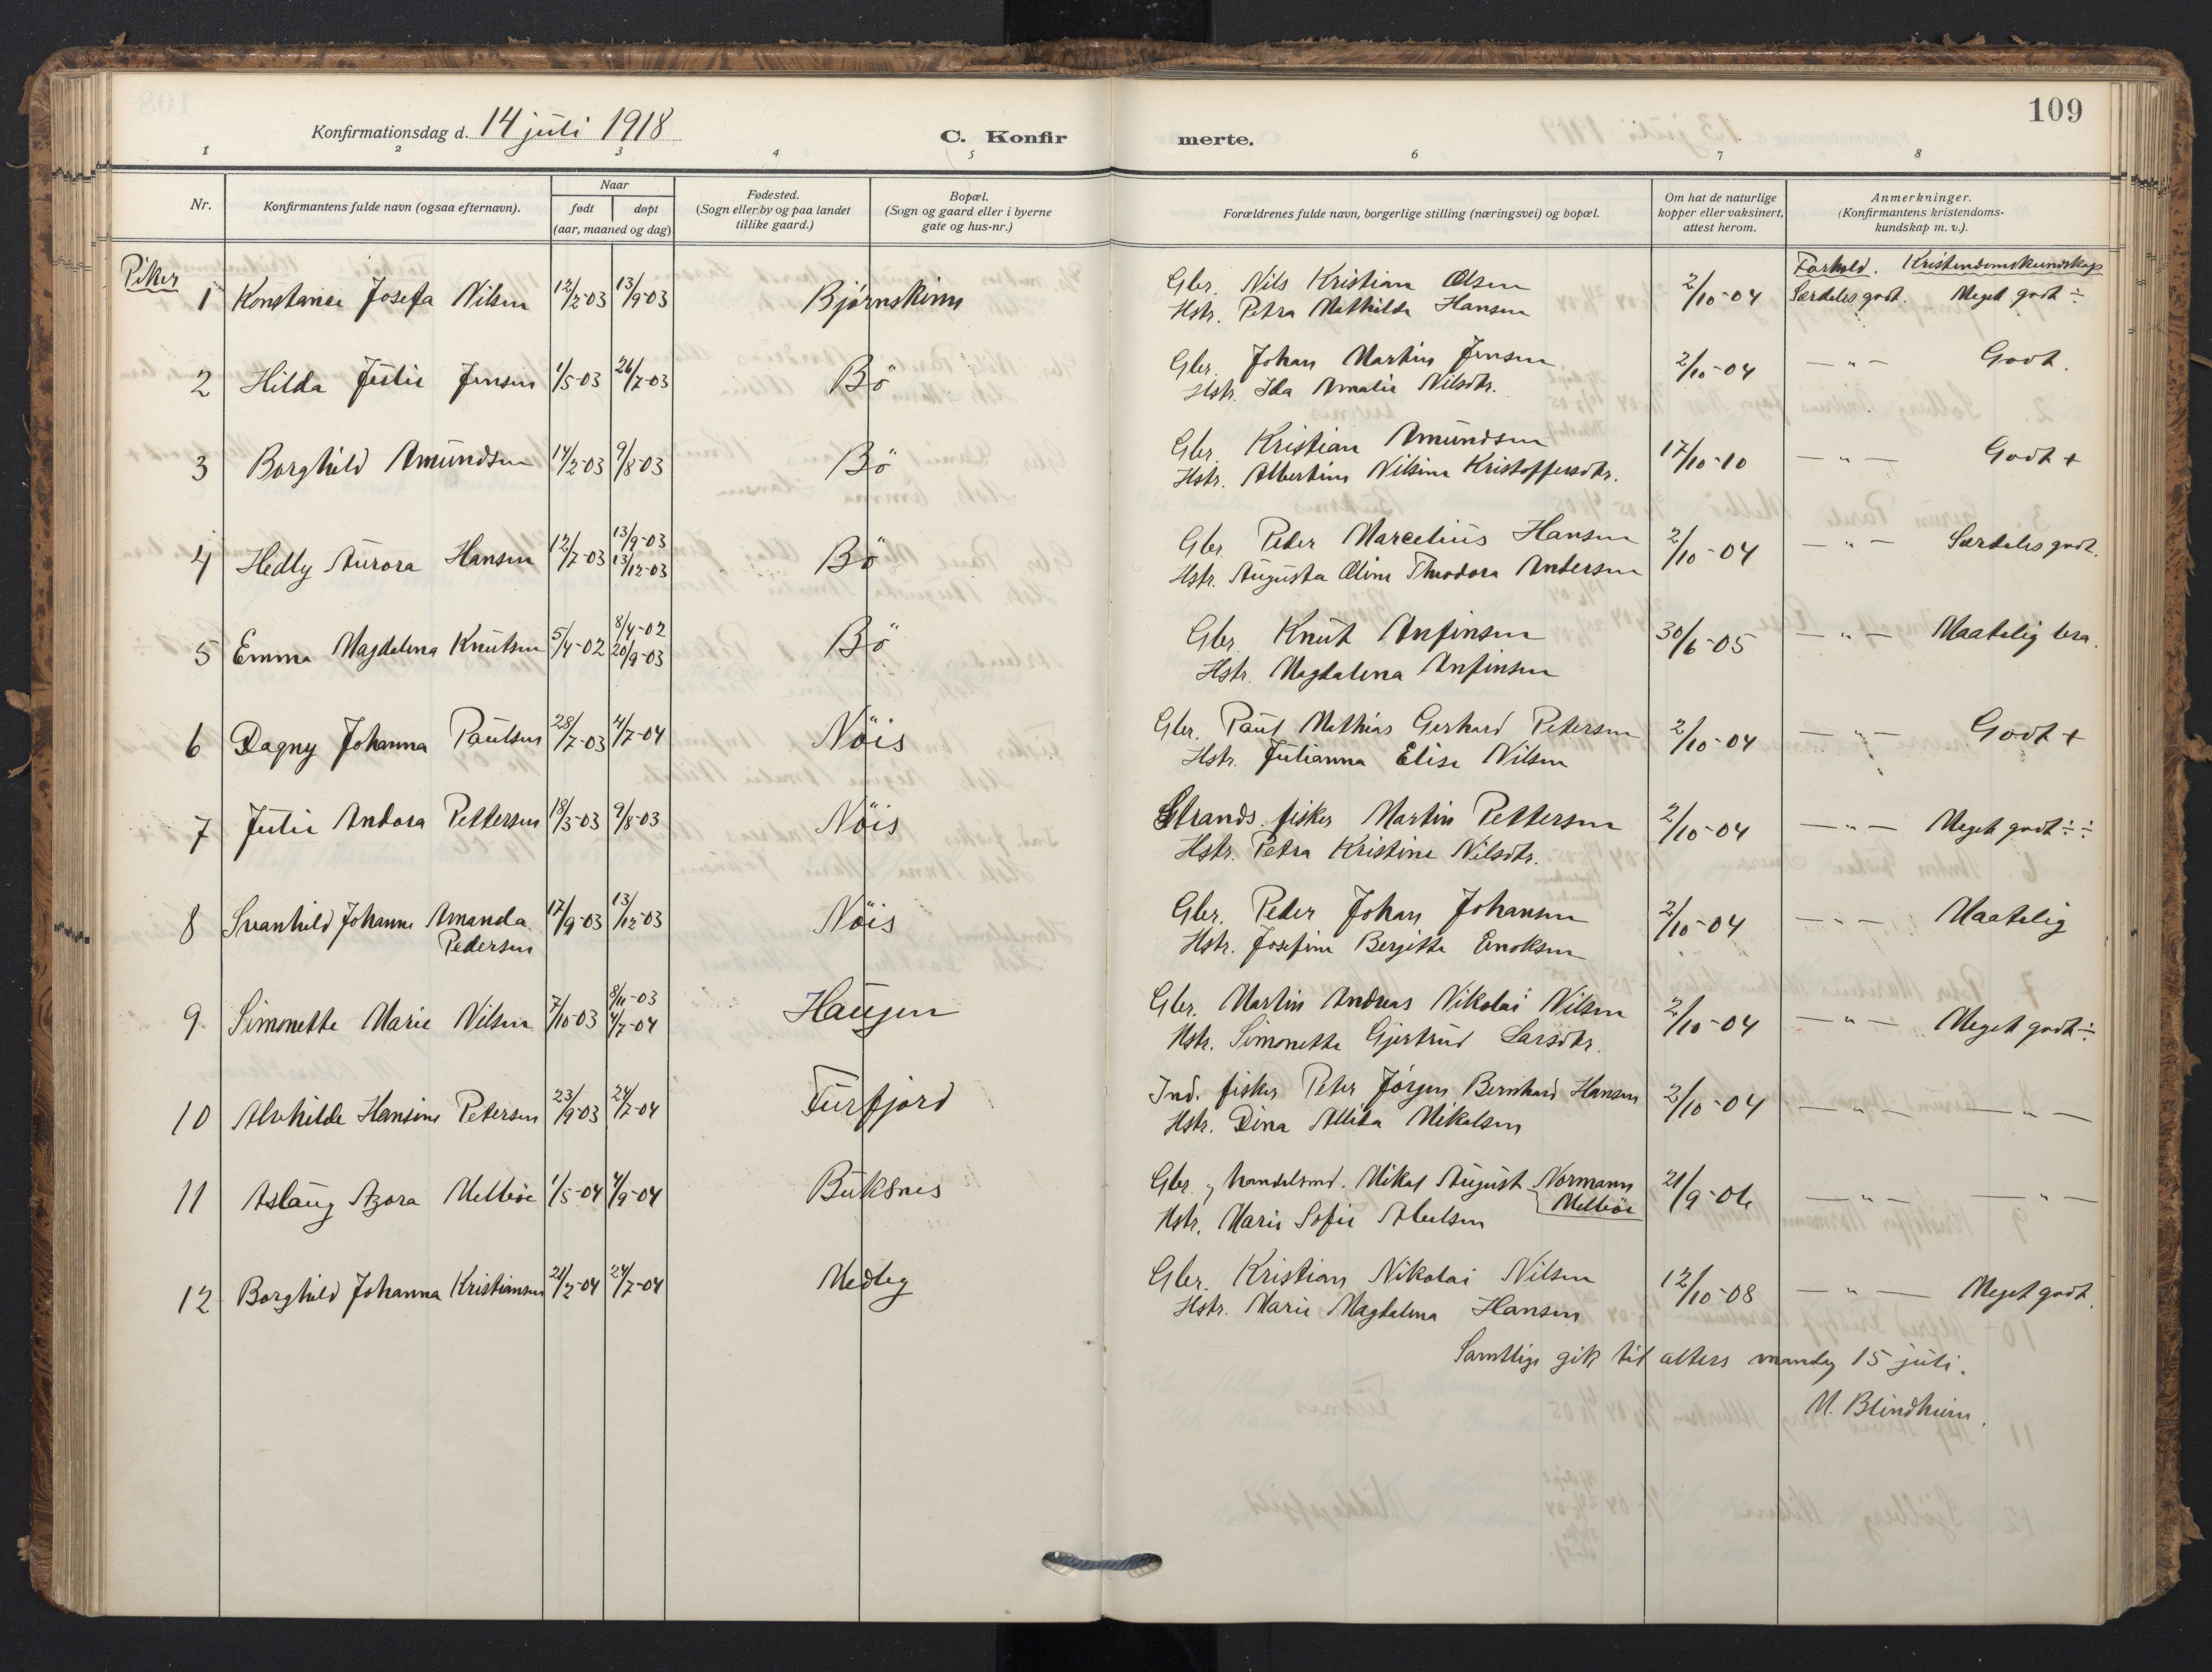 109
Konfirmationsdag d. 14 juli 1918
C. Konfir
merte.
1 2 3 4 5 6 7 8
Nr.
Konfirmantens fulde navn (ogsaa efternavn).
Naar
født døpt
(aar, maaned og dag)
Fødested.
(Sogn eller by og paa landet
tillike gaard.)
Bopæl.
(Sogn og gaard eller i byerne
gate og hus-nr.)
Forældrenes fulde navn, borgerlige stilling (næringsvei) og bopæl.
Om hat de naturlige
kopper eller vaksinert,
attest herom.
Anmerkninger.
(Konfirmantens kristendoms-
kundskap m. v.).
Piker
Forhold. Kristendomskundskap
1 Konstance Josefa Nilsen 12/2-03 13/9-03 Bjørnskinn Gbr. Nils Kristian Olsen 2/10-04 Særdeles godt. Meget godt ÷
Hstr. Petra Mathilde Hansen
2 Hilda Julie Jensen 1/5-03 26/7-03 Bö Gbr. Johan Martin Jensen 2/10-04 — " — Godt.
Hstr. Ida Amalie Nilsdtr.
3 Borghild Amundsen 14/2-03 9/8-03 Bö Gbr. Kristian Amundsen 17/10-10 — " — Godt +
Hstr. Albertine Nilsine Kristoffersdtr.
4 Hedly Aurora Hansen 12/7-03 13/9-03 Bö Gbr. Peder Marcelius Hansen 2/10-04 — " — Særdeles godt.
13/12-03 Hstr. Augusta Oline Theodora Andersen
5 Emma Magdalena Knutsen 5/4-02 8/4-02 Bö Gbr. Knut Anfinsen 30/6-05 — " — Maatelig bra.
20/9-03 Hstr. Magdalena Anfinsen
6 Dagny Johanna Paulsen 28/7-03 4/7-04 Nöis Gbr. Paul Mathias Gerhard Petersen 2/10-04 — " — Godt +
Hstr. Julianna Elise Nilsen
7 Julie Andora Pettersen 18/3-03 9/8-03 Nöis Strands. fisker Martin Pettersen 2/10-04 — " — Meget godt ÷÷
Hstr. Petra Kristine Nilsdtr.
8 Svanhild Johanne Amanda 17/9-03 13/12-03 Nöis Gbr. Peder Johan Johansen 2/10-04 — " — Maatelig
Pedersen Hstr. Josefine Bergitte Enoksen
9 Simonette Marie Nilsen 7/10-03 8/11-03 Haugen Gbr. Martin Andreas Nikolai Nilsen 2/10-04 — " — Meget godt ÷
4/7-04 Hstr. Simonette Gjertrud Larsdtr.
10 Alvhilde Hansine Petersen 23/9-03 24/7-04 Turfjord Ind. fisker Peter Jörgen Bernhard Hansen 2/10-04 — " — — " —
Hstr. Dina Alida Mikalsen
11 Aslaug Azora Melböe 1/5-04 4/9-04 Buksnes Gbr. og handelsmd. Mikal August Normann 21/9-06 — " — — " —
Melböe
Hstr. Marie Sofie Abelsen
12 Borghild Johanna Kristiansen 21/2-04 24/7-04 Medby Gbr. Kristian Nikolai Nilsen 12/10-08 — " — Meget godt.
Hstr. Marie Magdalena Hansen
Samtlige gik til alters mandag 15 juli.
M. Blindheim.